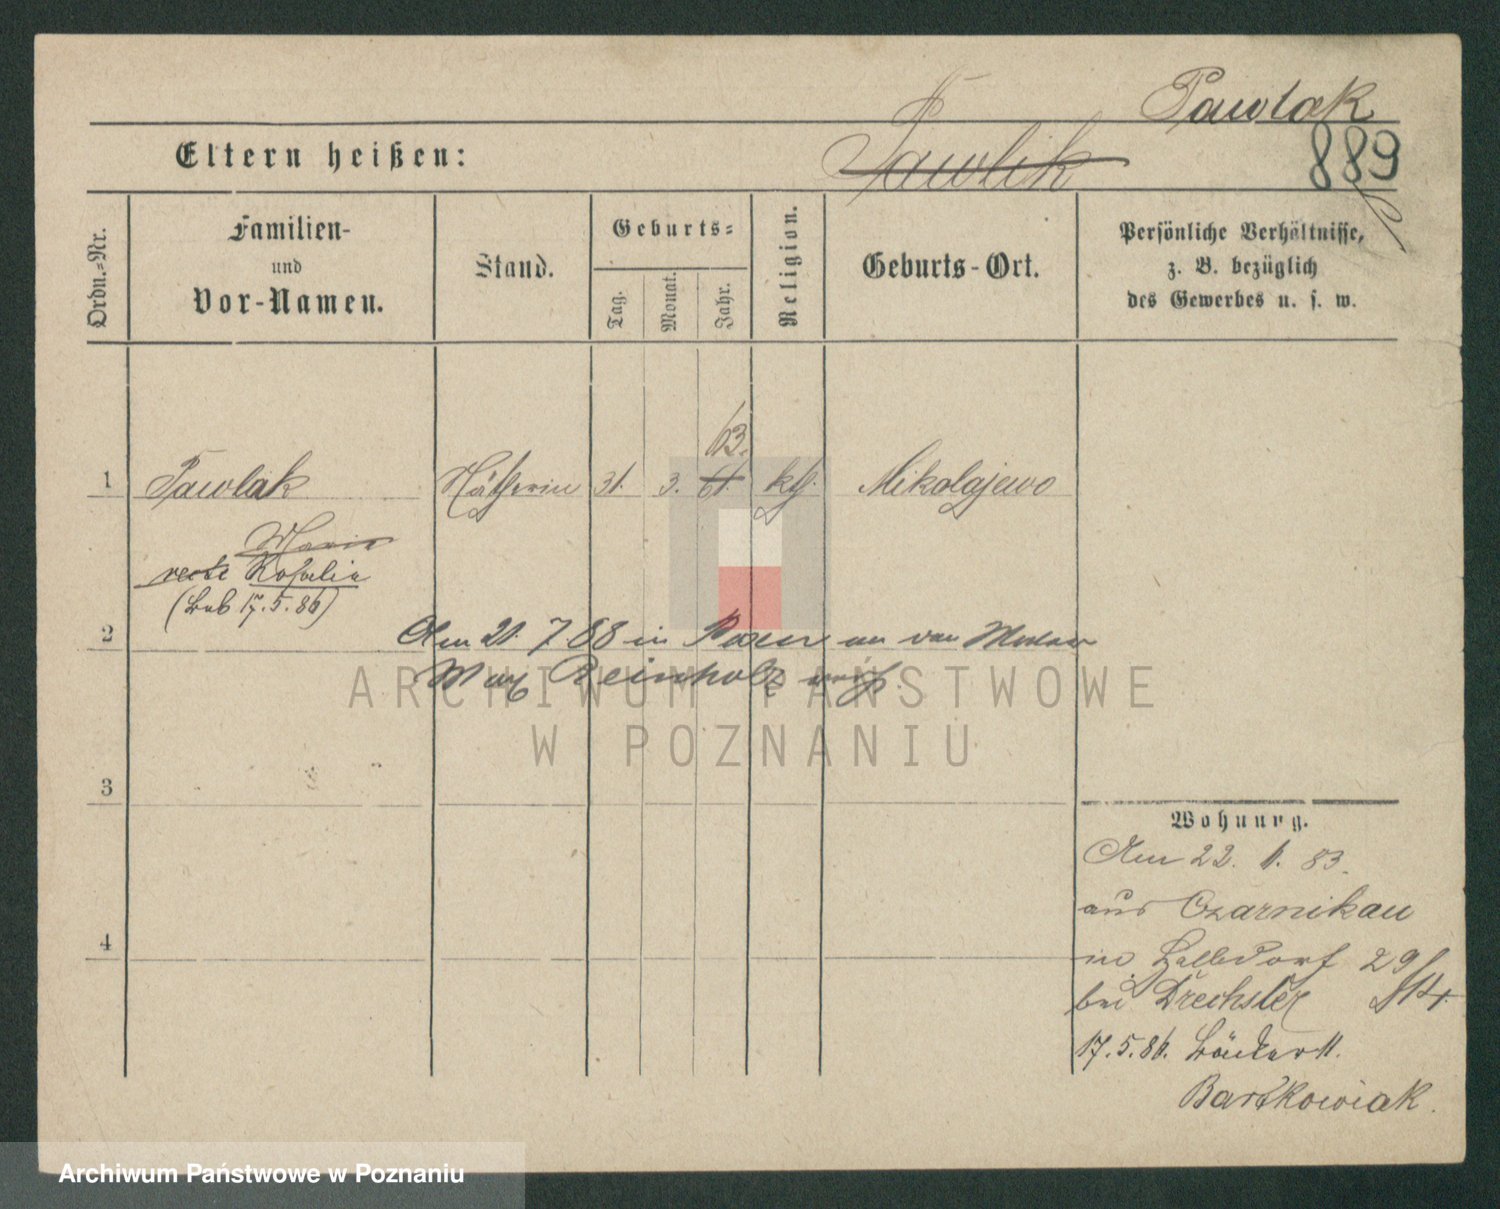 Pawlak
Eltern heißen: Pawlik 889
Ordn.-Nr.
Familien-
und
Vor-Namen.
Stand.
Geburts-
Tag.
Monat.
Jahr.
Religion.
Geburts-Ort.
Persönliche Verhältnisse,
z. B. bezüglich
des Gewerbes u. s. w.
63.
1 Pawlak Nätherin 31. 3. 61. kth. Mikolajewo
Maria
recte Rosalie
(Lub 17.5.86)
2 Am 21. 7. 88 in Posen an den
Max Reinholz verh.
ARCHIWUM PAŃSTWOWE
W POZNANIU
3
Wohnung.
Am 22. 11. 83.
aus Czarnikau
4
in Halbdorf 29
bei Drechsler
17.5.86. Bäcker 11.
Bartkowiak.
Archiwum Państwowe w Poznaniu